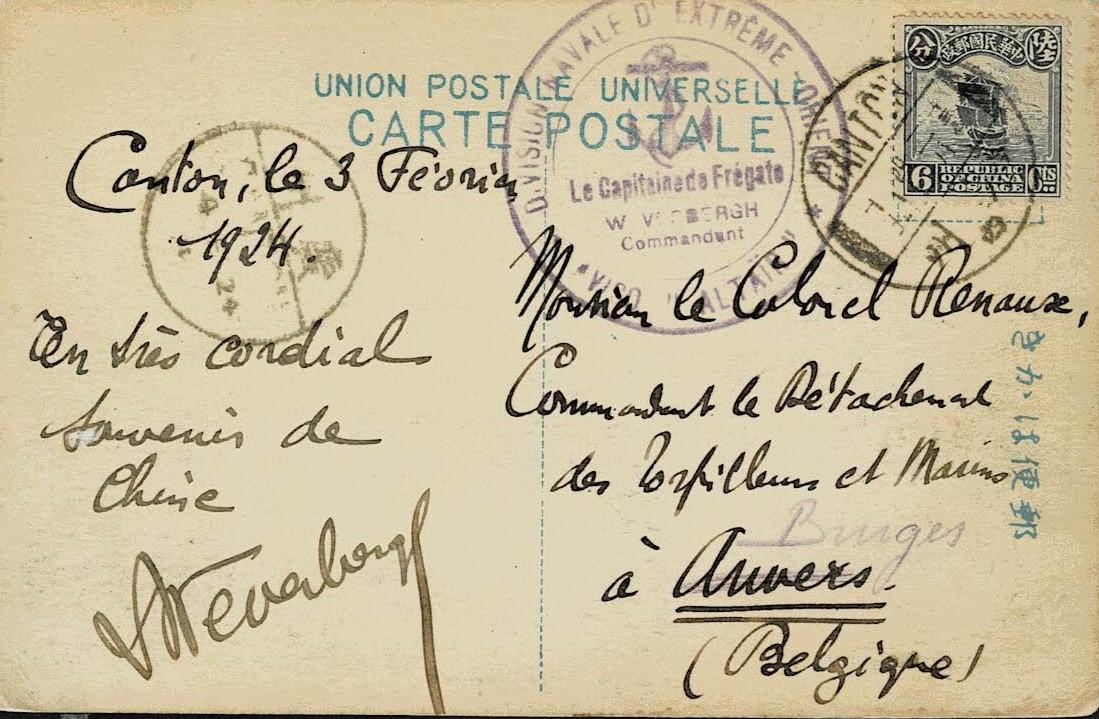 UNION POSTALE UNIVERSELLE
CARTE POSTALE
DIVISION NAVALE D'EXTRÊME-ORIENT
Le Capitaine de Frégate
Commandant
CANTON
中華民國郵政
陸
分
6
REPUBLIC
OF CHINA
POSTAGE
6
cts
Canton, le 3 Février
1924.
En très cordial
Souvenir de
Chine
Weverbergh
Monsieur le Colonel Renaux,
Commandant le Détachement
des Torpilleurs et Marins
Bruges
à Anvers.
(Belgique)
きかは便郵
24